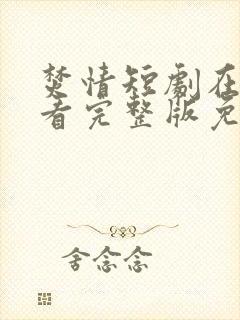 焚情短剧在
看完整版免
舍念念